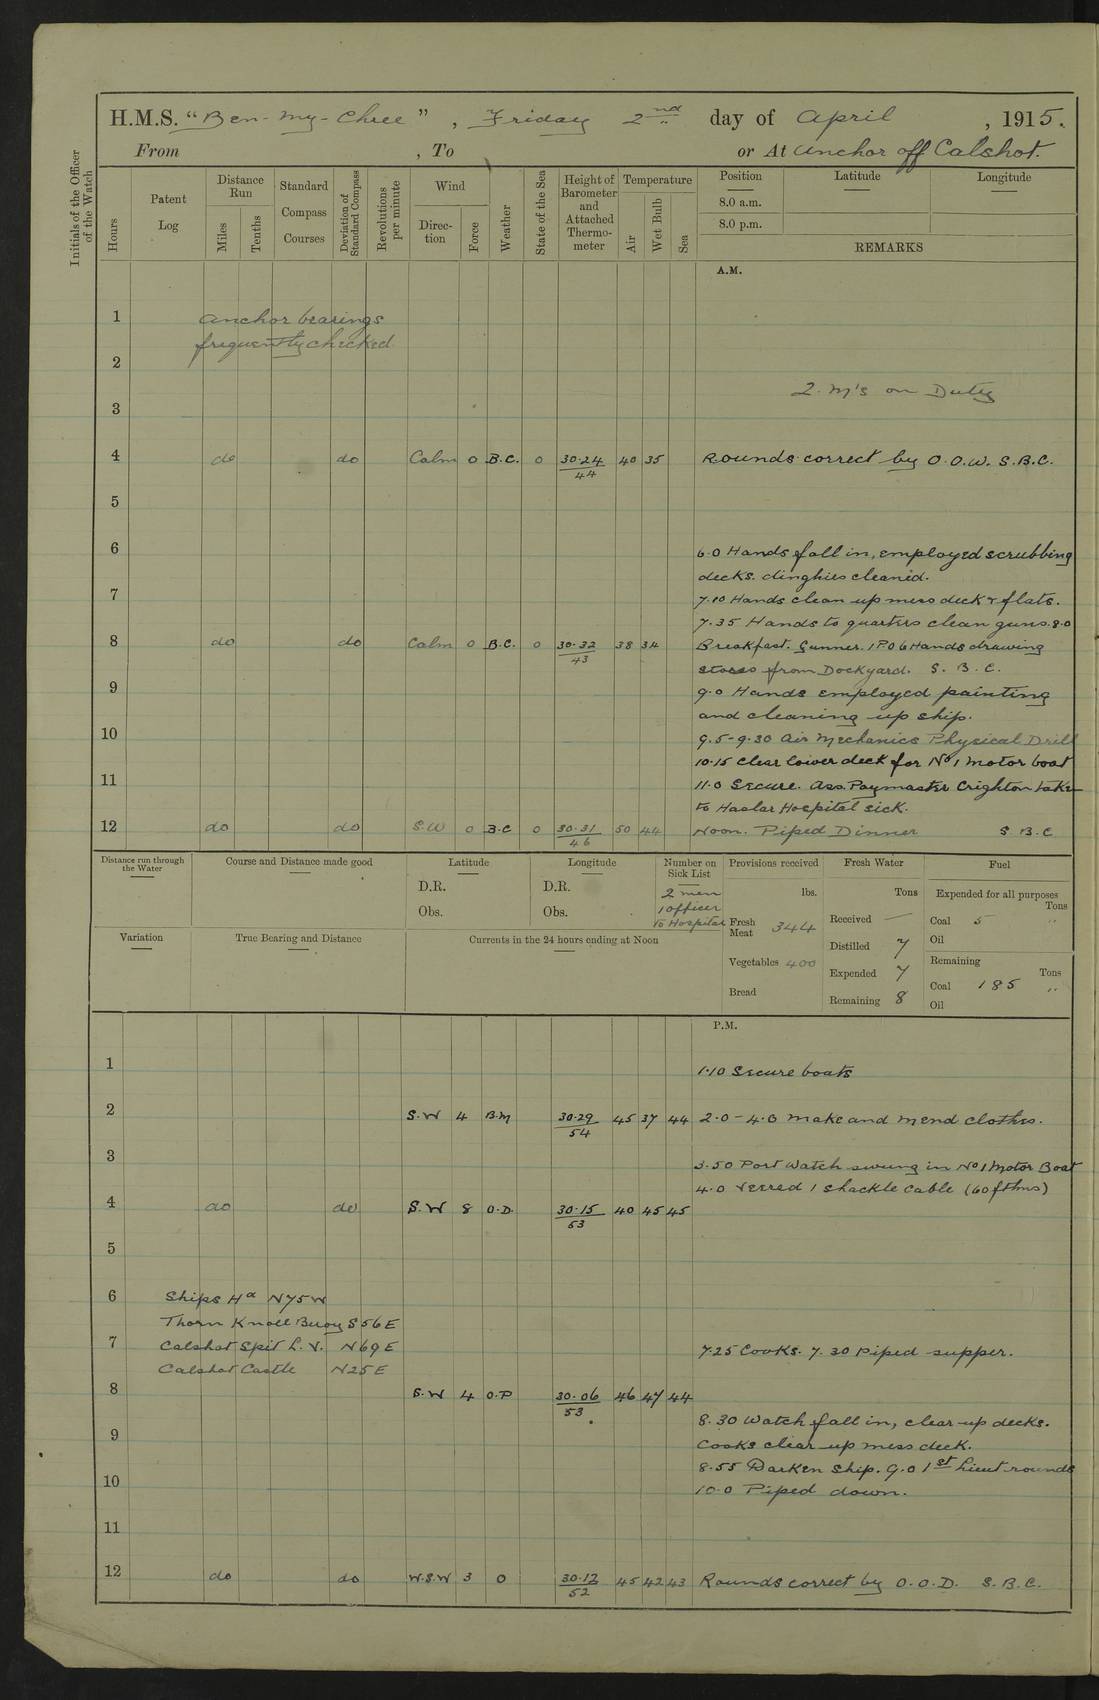 H.M.S. "Ben-my-Chree", Friday 2nd day of April, 1915.
From , To or At Anchor off Calshot.
Initials of the Officer of the Watch
Hours
Patent Log
Distance Run
Miles
Tenths
Standard Compass Courses
Deviation of Standard Compass
Revolutions per minute
Wind
Direction
Force
Weather
State of the Sea
Height of Barometer and Attached Thermometer
Temperature
Air
Wet Bulb
Sea
Position
8.0 a.m.
8.0 p.m.
Latitude
Longitude
REMARKS
A.M.
1 Anchor bearings
frequently checked
2
2. M's on Duty
3
4 do do Calm 0 B.C. 0 30.24/44 40 35 Rounds correct by O.O.W. S.B.C.
5
6 6.0 Hands fall in, employed scrubbing
decks. dinghies cleaned.
7 7.10 Hands clean up mess deck & flats.
7.35 Hands to quarters clean guns. 8.0
8 do do Calm 0 B.C. 0 30.32/43 38 34 Breakfast. Gunner. 1 P.O 6 Hands drawing
stores from Dockyard. S.B.C.
9 9.0 Hands employed painting
and cleaning up ship.
10 9.5-9.30 Air Mechanics Physical Drill
10.15 Clear lower deck for No 1 motor boat
11 11.0 Secure. Ass. Paymaster Crighton taken
to Haslar Hospital sick.
12 do do S.W 0 B.C 0 30.31/46 50 44 Noon. Piped Dinner S B C
Distance run through the Water
Course and Distance made good
Latitude
D.R.
Obs.
Longitude
D.R.
Obs.
Number on Sick List
2 men
1 officer
to Hospital
Provisions received
lbs.
Fresh Meat 344
Vegetables 400
Bread
Fresh Water
Tons
Received —
Distilled 7
Expended 7
Remaining 8
Fuel
Expended for all purposes
Tons
Coal 5 "
Oil
Remaining
Tons
Coal 185 "
Oil
Variation
True Bearing and Distance
Currents in the 24 hours ending at Noon
P.M.
1 1.10 Secure boats
2 S.W 4 B.M 30.29/54 45 37 44 2.0-4.0 make and mend clothes.
3 3.50 Port Watch swung in No 1 Motor Boat
4.0 Veered 1 shackle cable (60 fthms)
4 do do S.W 8 O.D. 30.15/53 40 45 45
5
6 Ships Hd N75W
Thorn Knoll Buoy S56E
7 Calshot Spit L.V. N69E 7.25 Cooks. 7.30 Piped supper.
Calshot Castle N25E
8 S.W 4 O.P 30.06/53 46 47 44
8.30 Watch fall in, clear up decks.
9 Cooks clear up mess deck.
8.55 Darken Ship. 9.0 1st Lieut rounds
10 10.0 Piped down.
11
12 do do W.S.W 3 O 30.12/52 45 42 43 Rounds correct by O.O.D. S.B.C.